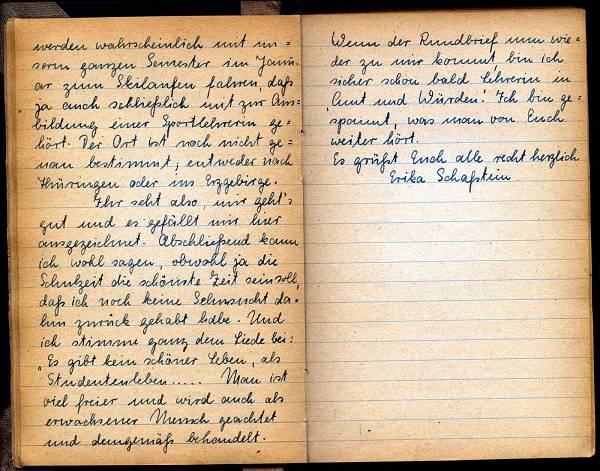 werden wahrscheinlich mit un=
serm ganzen Semester im Janu=
ar zum Skilaufen fahren, daß
ja auch schließlich mit zur Aus=
bildung einer Sportlehrerin ge=
hört. Der Ort ist noch nicht ge=
nau bestimmt, entweder nach
Thüringen oder ins Erzgebirge.
Ihr seht also, mir geht's
gut und es gefällt mir hier
ausgezeichnet. Abschließend kann
ich wohl sagen, obwohl ja die
Schulzeit die schönste Zeit sein soll,
daß ich noch keine Sehnsucht da=
hin zurück gehabt habe. Und
ich stimme ganz dem Liede bei:
"Es gibt kein schöner Leben, als
Studentenleben..... Man ist
viel freier und wird auch als
erwachsener Mensch geachtet
und demgemäß behandelt.
Wenn der Rundbrief nun wie=
der zu mir kommt, bin ich
sicher schon bald Lehrerin in
Amt und Würden! Ich bin ge=
spannt, was man von Euch
weiter hört.
Es grüßt Euch alle recht herzlich
Erika Schafstein